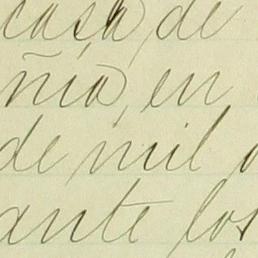 casa, de
ñia, en
de mil
ante los